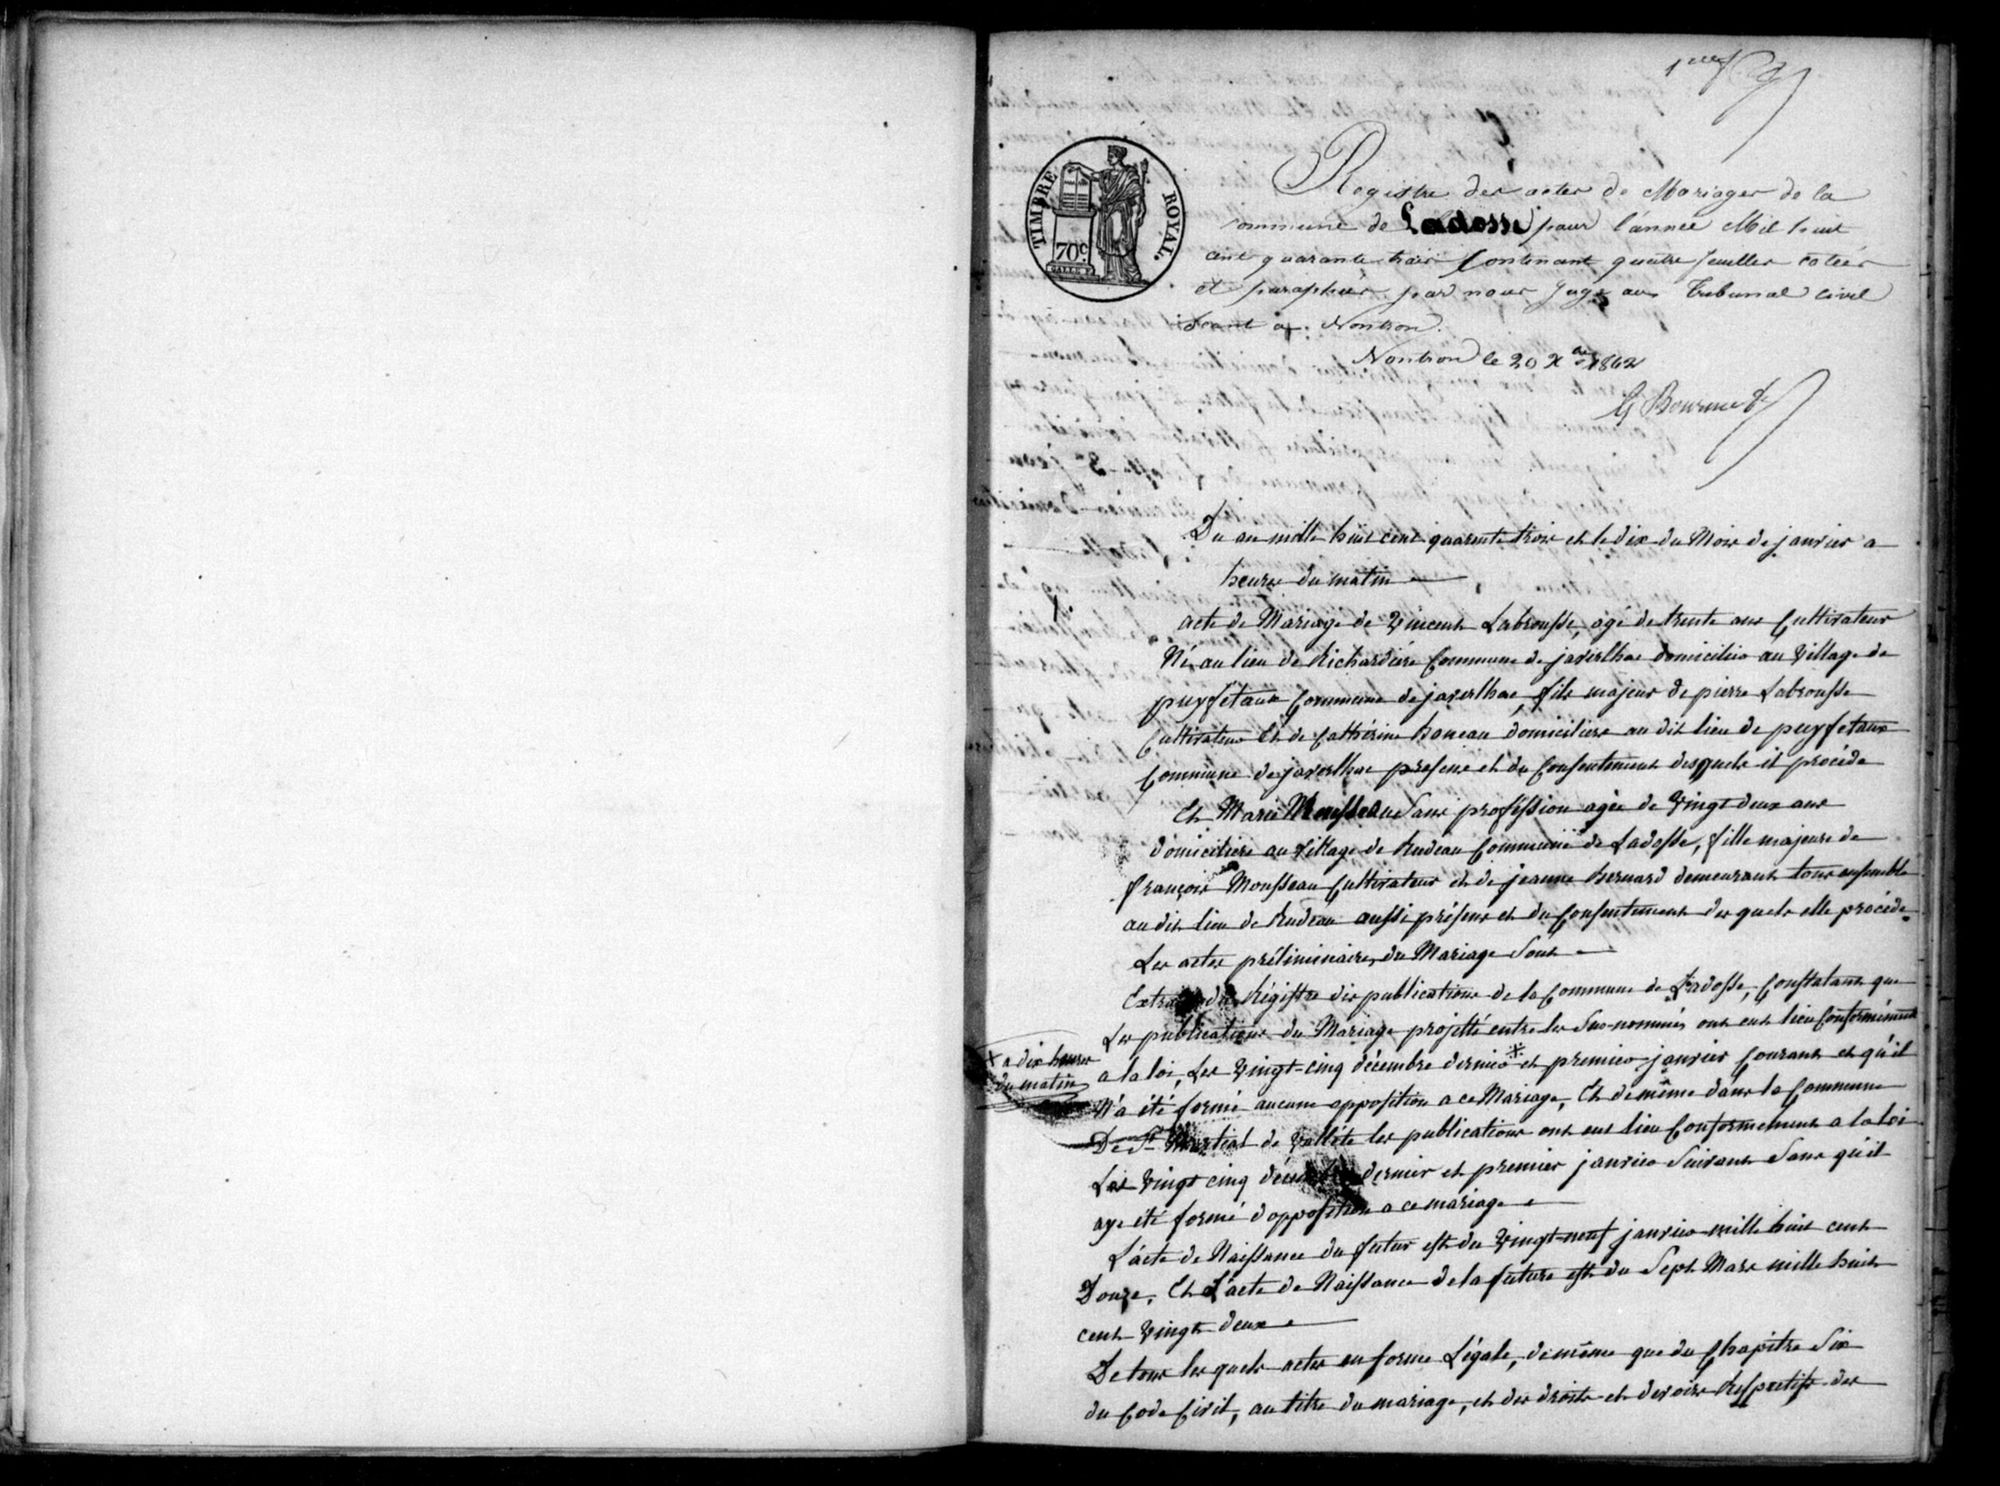 1re
TIMBRE ROYAL.
70c.
Registre des actes de Mariages de la
commune de Ladosse pour l'année Mil huit
cent quarante trois Contenant quatre feuilles cotées
et paraphées par nous Juge au Tribunal civil
séant à Nontron.
Nontron le 20 Xbre 1842
Du an mille huit cent quarente trois et le dix du Mois de janvier a
heures du matin
1.
acte de Mariage de Vincent Labrousse, agé de trente ans Cultivateur
Né au lieu de Richardiere Commune de javerlhac domicilié au Village de
puyfetaux Commune de javerlhac, fils majeur de pierre Labrousse
Cultivateur Et de Cathérine domiciliers au dit lieu de puyfetaux
Commune de javerlhac présens et du Consentement desquels il procéde
Et Marie Mousseau Sans proféssion agée de Vingt deux ans
domiciliée au Village de Rudeau Commune de Ladosse, fille majeure de
françois Mousseau Cultivateur et de jeanne Bernard demeurant tous ensemble
au dit lieu de Rudeau aussi présens et du Consentement des quels elle procéde.
Les actes préliminaires du Mariage Sont
Extrait du Régistre des publications de la Commune de Ladosse, Constatant que
Les publications du Mariage projetté entre les Sus-nommés ont eut lieu Conformément
a la loi, Les Vingt-cinq décembre dernier + et premier janvier Courant et qu'il
+ a dix heures
du matin
N'a été formé aucune opposition a ce Mariage, Et de même dans la Commune
De St Martial de Vallète les publications ont eut lieu Conformément a la loi
Les Vingt cinq décembre dernier et premier janvier Suivant Sans qu'il
aye été formé d'opposition a ce mariage
L'acte de Naissance du futur est du Vingt-neuf janvier mille huit cent
Douze, Et L'acte de Naissance de la future est du Sept Mars mille huit
cent Vingt deux
De tous les quels actes en forme Légale, de même que du Chapitre Six
du Code Civil, au titre du mariage, et des droits et devoirs Respectifs des